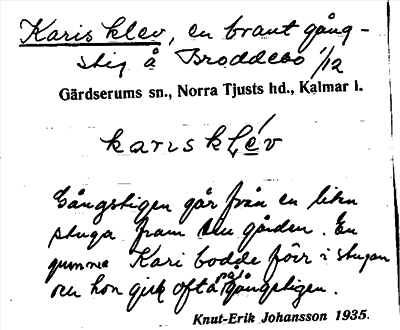 Karis klev, en brant gång-
stig å Broddebo 1/12
Gärdserums sn., Norra Tjusts hd., Kalmar l.
karısklév
Gångstigen går från en liten
stuga fram till gården. En
gumma Kari bodde förr i stugan
och hon gick ofta på gångstigen.
Knut-Erik Johansson 1935.